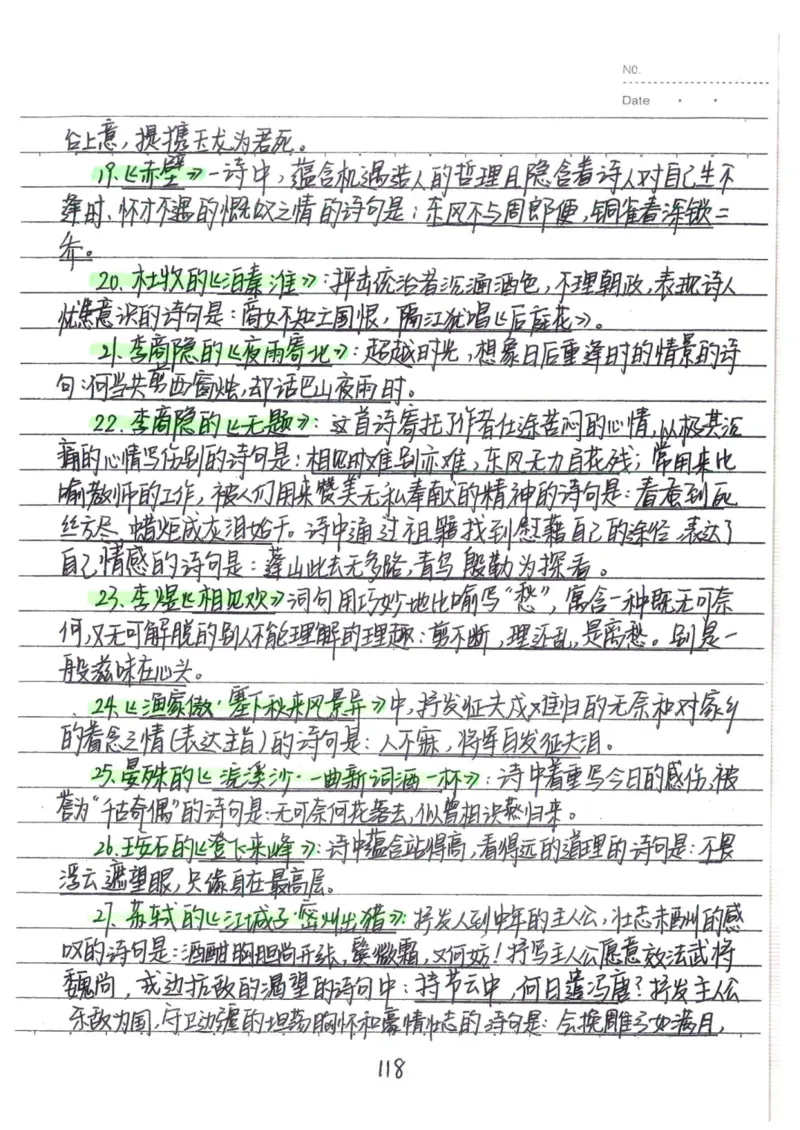 NO.
Date
台上意，提携玉龙为君死。
19.《赤壁》一诗中，蕴含机遇造人的哲理且隐含着诗人对自己生不
逢时、怀才不遇的慨叹之情的诗句是：东风不与周郎便，铜雀春深锁二
乔。
20.杜牧的《泊秦淮》：抨击统治者沉湎酒色，不理朝政，表现诗人
忧患意识的诗句是：商女不知亡国恨，隔江犹唱《后庭花》。
21.李商隐的《夜雨寄北》：超越时光，想象日后重逢时的情景的诗
句：何当共剪西窗烛，却话巴山夜雨时。
22.李商隐的《无题》：这首诗寄托了作者仕途苦闷的心情，从极其沉
痛的心情写伤别的诗句是：相见时难别亦难，东风无力百花残；常用来比
喻教师的工作，被人们用来赞美无私奉献的精神的诗句是：春蚕到死
丝方尽，蜡炬成灰泪始干。诗中通过祖籍找到慰藉自己的途径，表达了
自己情感的诗句是：蓬山此去无多路，青鸟殷勤为探看。
23.李煜《相见欢》词句用巧妙地比喻写“愁”，寓含一种既无可奈
何，又无可解脱的别人不能理解的理趣：剪不断，理还乱，是离愁。别是一
般滋味在心头。
24.《渔家傲·塞下秋来风景异》中，抒发征夫戍难归的无奈和对家乡
的眷念之情(表达主旨)的诗句是：人不寐，将军白发征夫泪。
25.晏殊的《浣溪沙·一曲新词酒一杯》：诗中着重写今日的感伤，被
誉为“千古奇偶”的诗句是：无可奈何花落去，似曾相识燕归来。
26.王安石的《登飞来峰》：诗中蕴含站得高，看得远的道理的诗句是：不畏
浮云遮望眼，只缘身在最高层。
27.苏轼的《江城子·密州出猎》：抒发人到中年的主人公，壮志未酬的感
叹的诗句是：酒酣胸胆尚开张，鬓微霜，又何妨！抒写主人公愿意效法武将
魏尚，戍边抗敌的渴望的诗句中：持节云中，何日遣冯唐？抒发主人公
杀敌为国，守卫边疆的坦荡胸怀和豪情壮志的诗句是：会挽雕弓如满月，
118